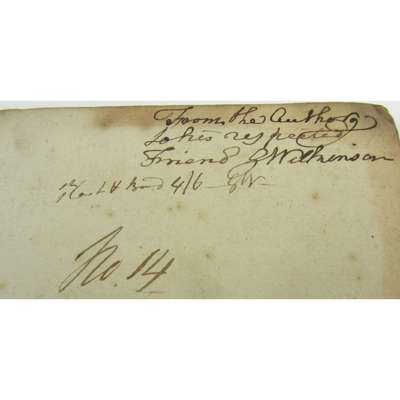 From the Author
to his respected
Friend G Wilkinson
& Board 4/6 GW
No. 14